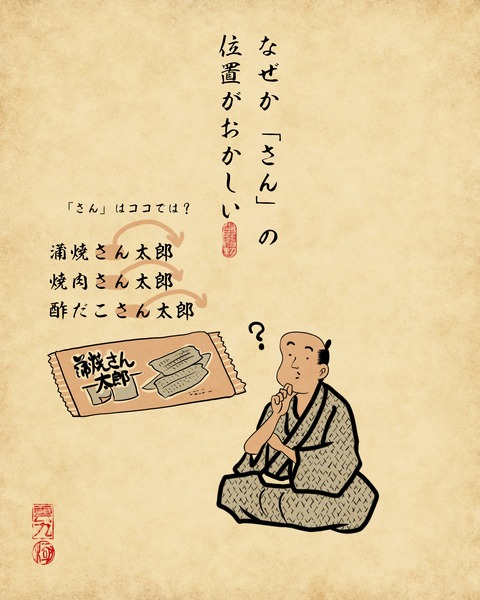 なぜか「さん」の
位置がおかしい
「さん」はココでは？
蒲焼さん太郎
焼肉さん太郎
酢だこさん太郎
蒲焼さん
太郎
？